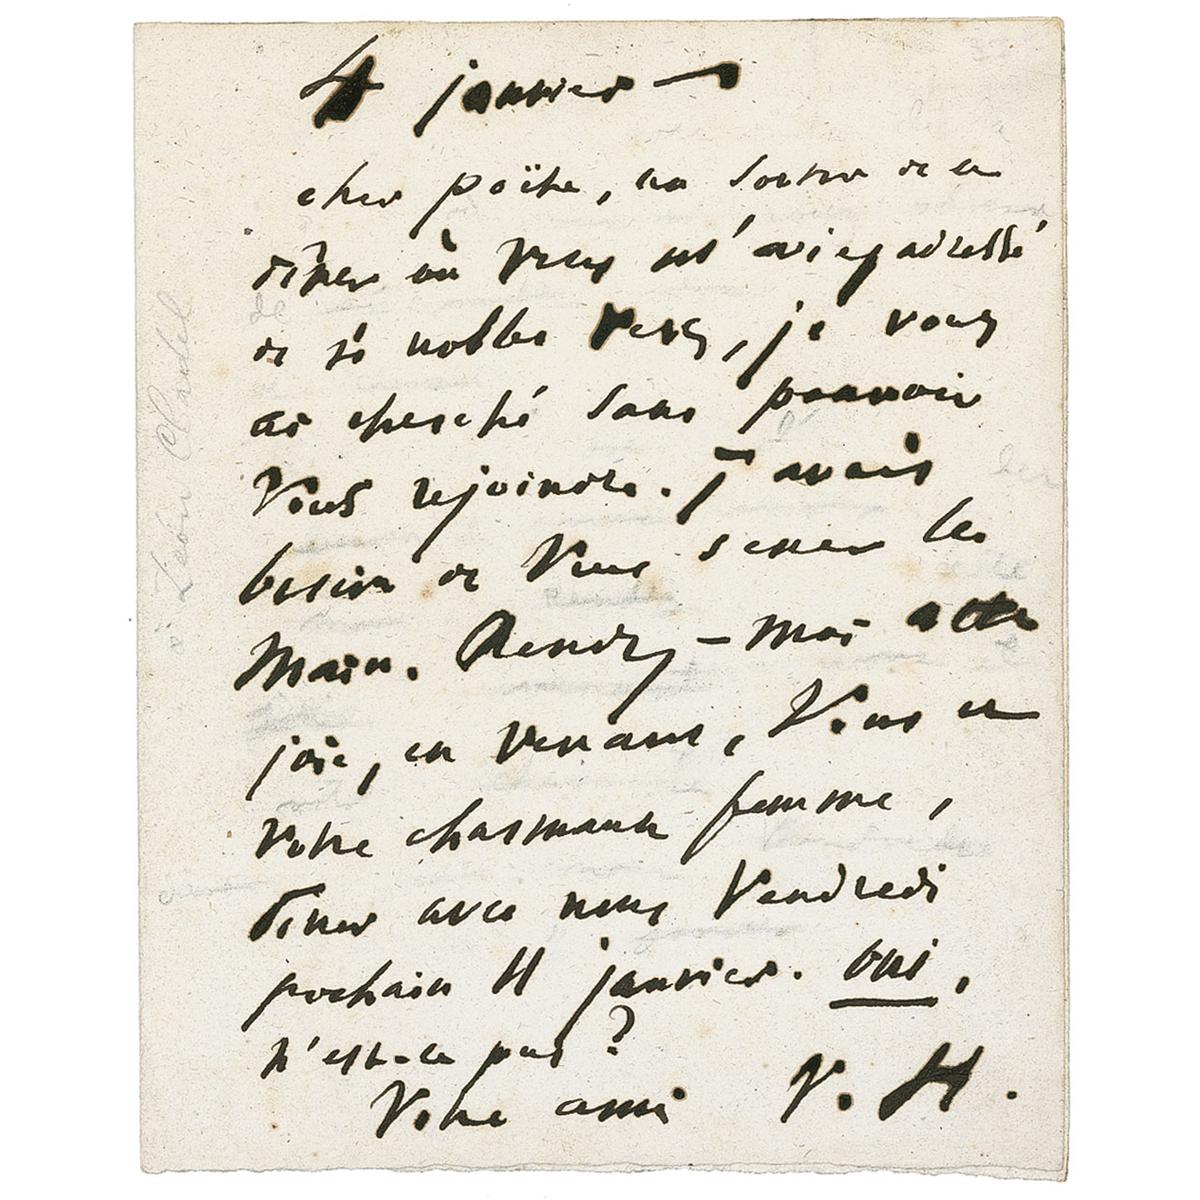 4 janvier —
cher poëte, en sortant de ce
dîner où vous m'aviez adressé
de si nobles vers, je vous
ai cherché sans pouvoir
vous rejoindre. J'avais
besoin de vous serrer la
main. Rendez-moi cette
joie, en venant, vous et
votre charmante femme,
dîner avec nous vendredi
prochain 11 janvier. oui,
n'est-ce pas ?
Votre ami V. H.
à Léon Cladel